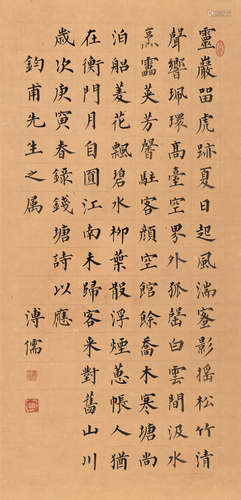 靈巖留虎跡夏日起風湍蜜影搖松竹清
聲響珮環高臺空界外孤磬白雲間汲水
烹靈英芳馨駐客顏空館餘喬木寒塘尚
泊船菱花飄碧水柳葉散浮煙蕙帳人猶
在衡門月自圓江南未歸客来對舊山川
歲次庚寅春錄錢塘詩以應
鈞甫先生之屬
溥儒